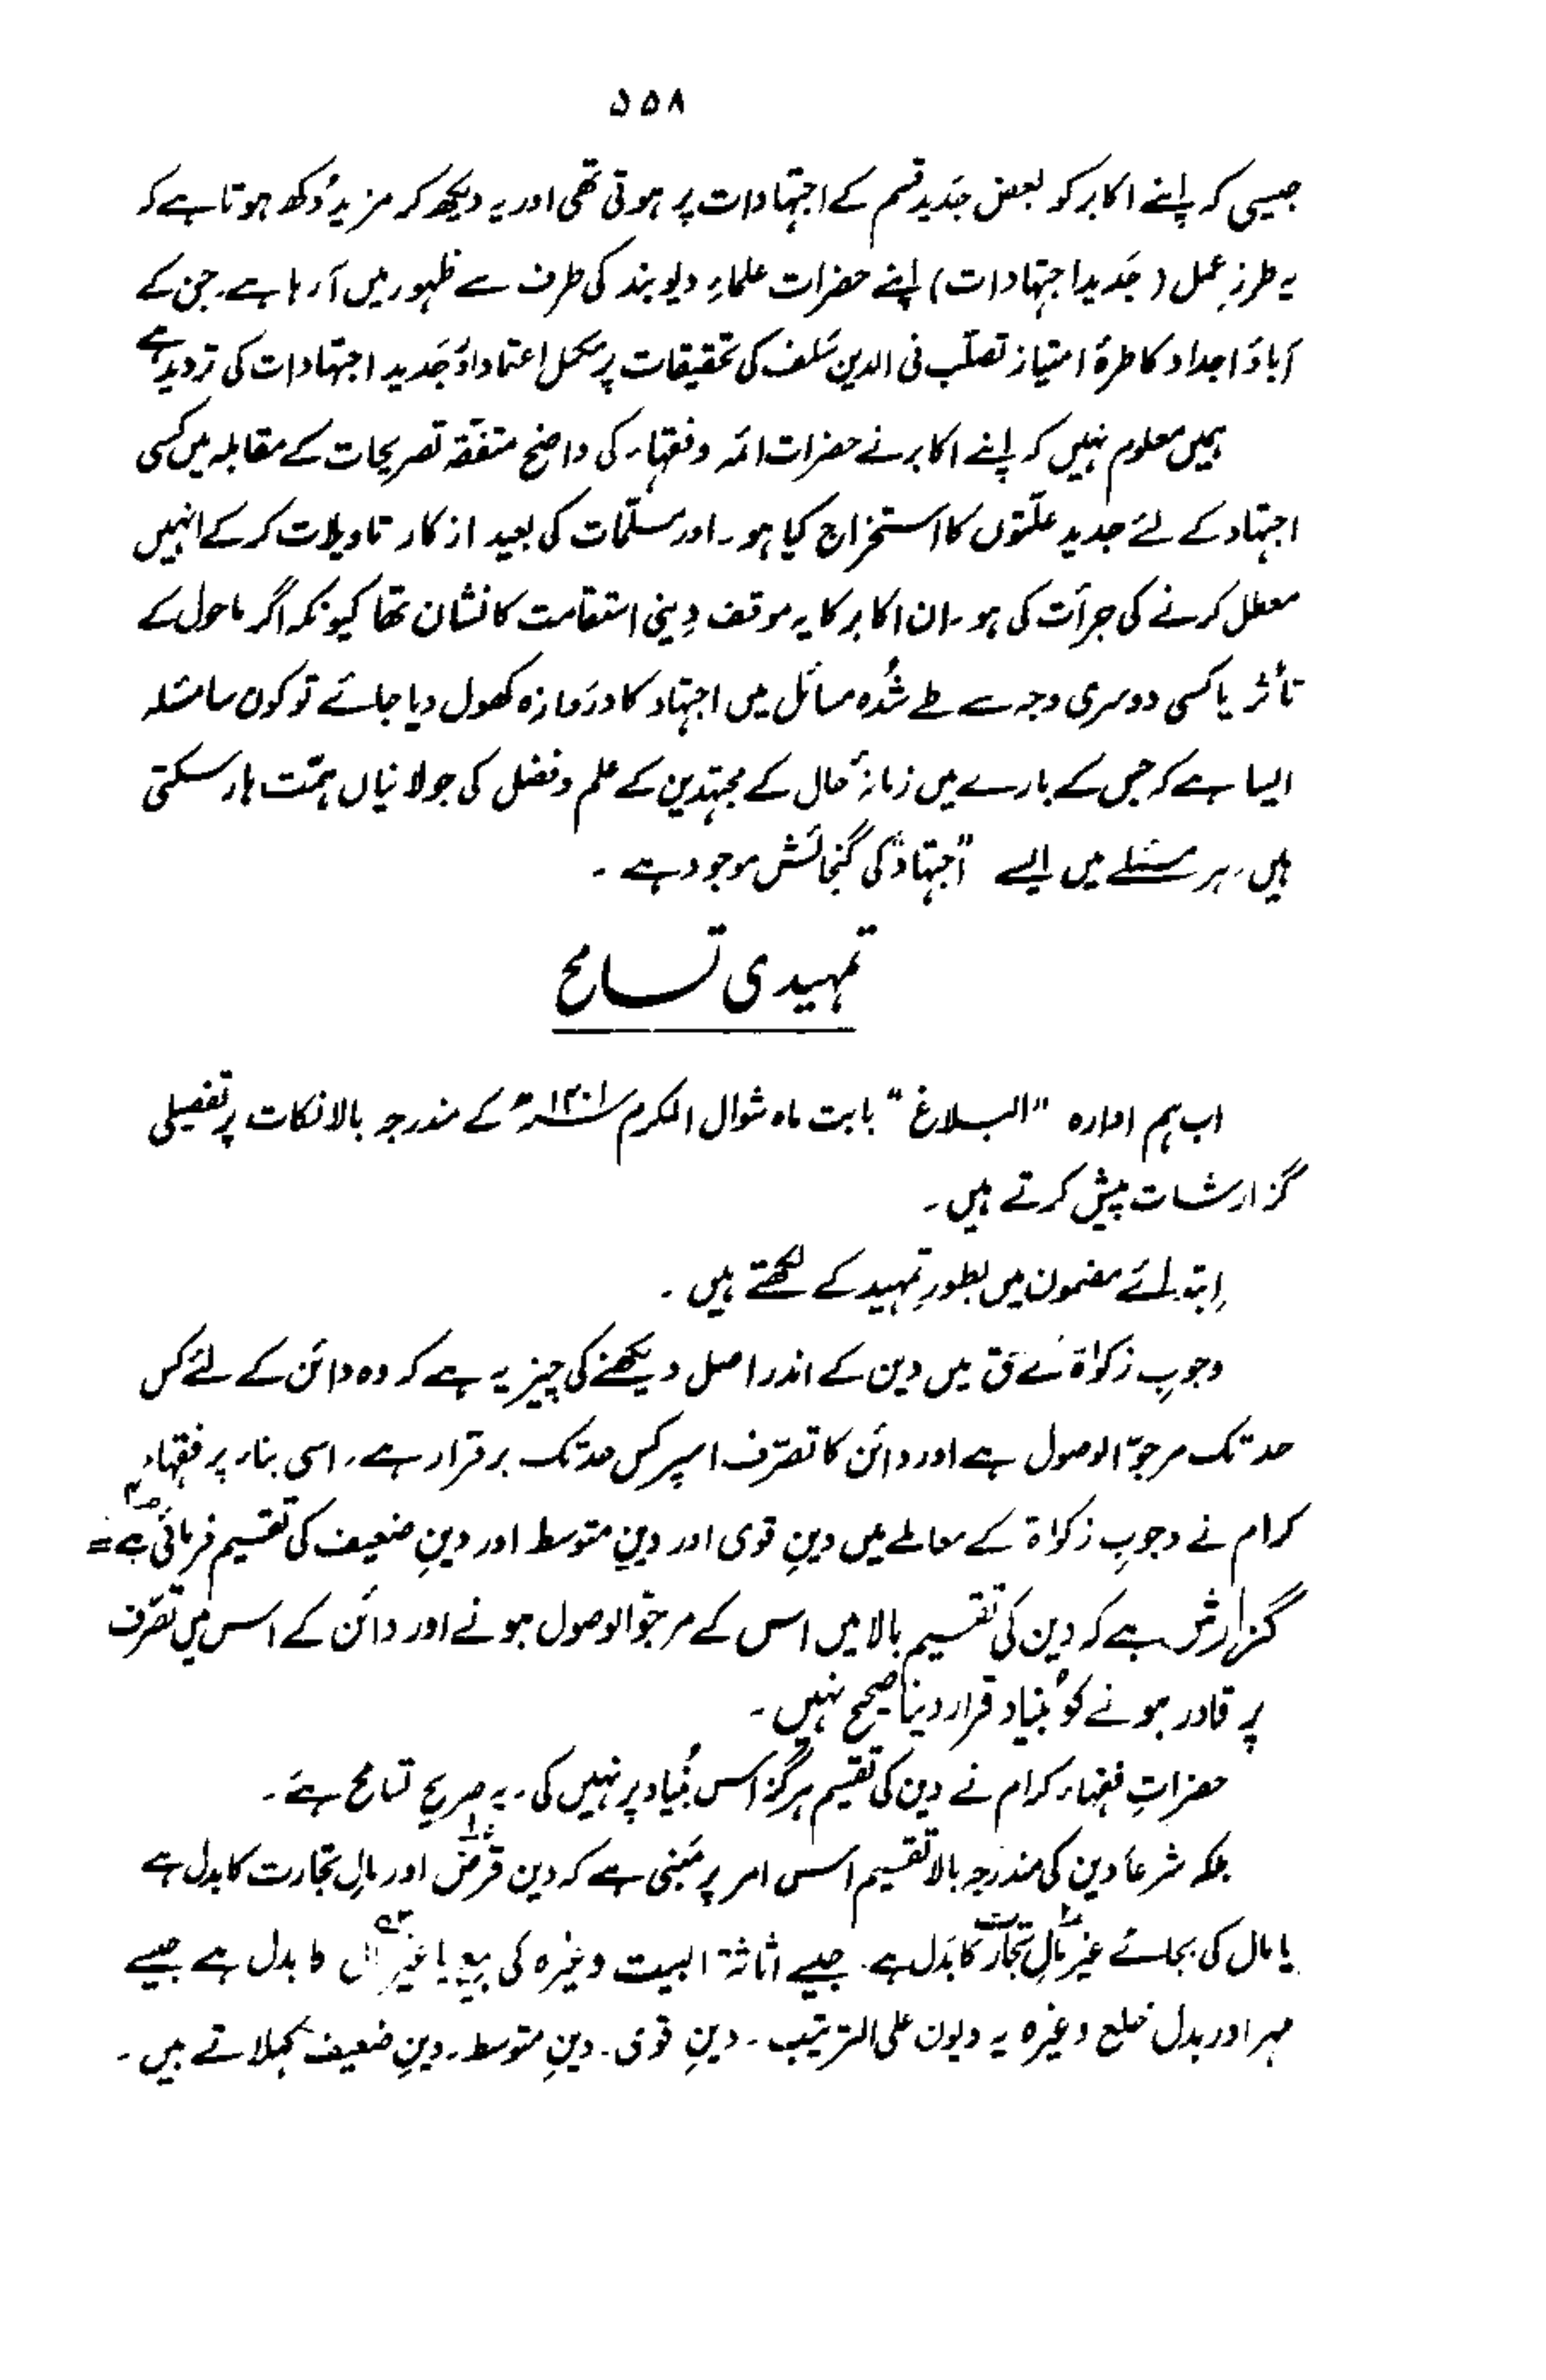 ۵۵۸
جیسی کہ اپنے اکابر کو بعض جدید قسم کے اجتہادات پر ہوتی تھی اور یہ دیکھ کر مزید دُکھ ہوتا ہے کہ
یہ طرزِ عمل (جدید اجتہادات) اپنے حضرات علماءِ دیوبند کی طرف سے ظہور میں آ رہا ہے۔ جن کے
آباؤ اجداد کا طرۂ امتیاز تصلّب فی الدین سَلف کی تحقیقات پر مکمل اعتماد اوُ جَدید اجتہادات کی تردید ہے
ہمیں معلوم نہیں کہ اپنے اکابر نے حضرات ائمہ و فقہاء کی واضح متفقہ تصریحات کے مقابلہ میں کسی
اجتہاد کے لئے جدید علّتوں کا استخراج کیا ہو۔ اور مسلّمات کی بعید از کار تاویلات کر کے انہیں
معطل کرنے کی جرأت کی ہو۔ ان اکابر کا یہ موقف دِینی استقامت کا نشان تھا کیونکہ اگر ماحول کے
تأثر یا کسی دوسری وجہ سے طے شُدہ مسائل میں اجتہاد کا دَروازہ کھول دیا جائے تو کون سا مسئلہ
ایسا ہے کہ جس کے بارے میں زمانۂ حال کے مجتہدین کے علم و فضل کی جولانیاں ہمّت ہار سکتی
ہیں، ہر مسئلے میں ایسے "اجتہاد" کی گنجائش موجود ہے۔
تمہیدی تسامح
اب ہم ادارہ "البلاغ" بابت ماہ شوال المکرم ۱۴۰۱ھ کے مندرجہ بالا نکات پر تفصیلی
گزارشات پیش کرتے ہیں۔
اِبتدائے مضمون میں بطورِ تمہید کے لکھتے ہیں۔
وجوبِ زکوٰۃ کے حق میں دین کے اندر اصل دیکھنے کی چیز یہ ہے کہ وہ دائن کے لئے کس
حد تک مرجوّ الوصول ہے اور دائن کا تصرّف اسپر کس حد تک برقرار ہے، اسی بناء پر فقہاء
کرام نے وجوبِ زکوٰۃ کے معاملے میں دینِ قوی اور دینِ متوسط اور دینِ ضعیف کی تقسیم فرمائی ہے =
گزارش ہے کہ دین کی تقسیم بالا میں اس کے مرجوّ الوصول ہونے اور دائن کے اس میں تصرّف
پر قادر ہونے کو بُنیاد قرار دینا صحیح نہیں۔
حضراتِ فقہاء کرام نے دین کی تقسیم ہرگز اس بُنیاد پر نہیں کی۔ یہ صریح تسامح ہے۔
بلکہ شرعاً دین کی مندرجہ بالا تقسیم اس امر پر مَبنی ہے کہ دین قرض اور مالِ تجارت کا بدل ہے
یا مال کی بجائے غیر مالِ تجارت کا بَدل ہے۔ جیسے اثاثۃ البیت وغیرہ کی بیع یا غیر مال کا بدل ہے جیسے
مہر اور بدل خلع وغیرہ یہ دیون علی الترتیب۔ دینِ قوی۔ دینِ متوسط۔ دینِ ضعیف کہلاتے ہیں۔